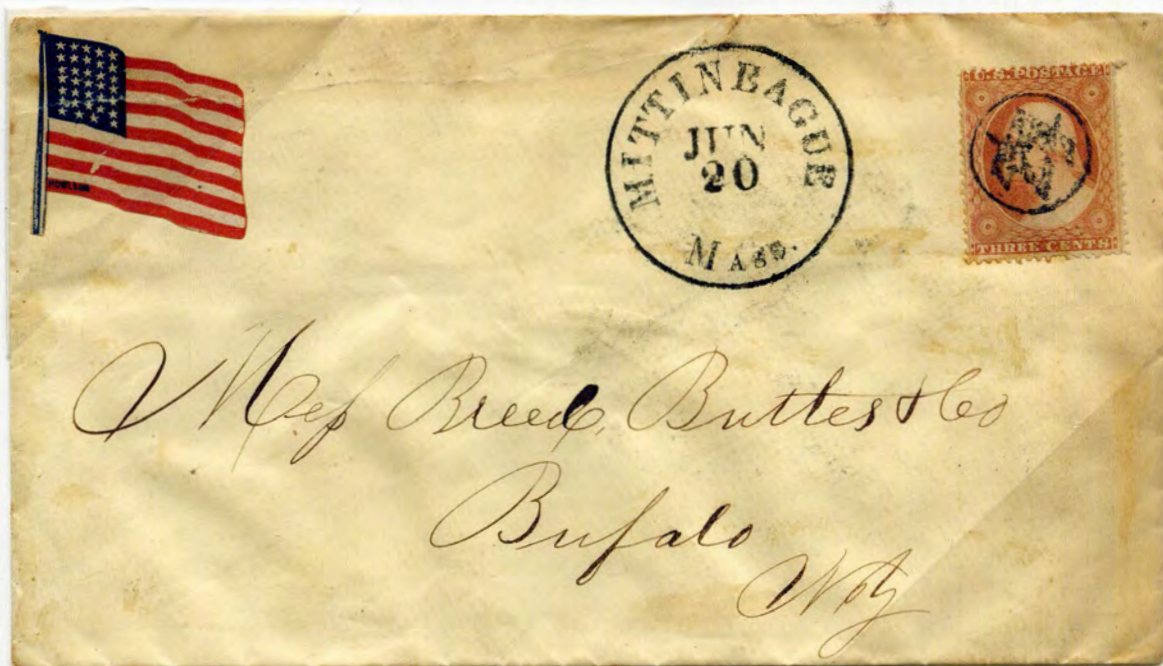 MITTINEAGUE
JUN
20
MASS.
U.S. POSTAGE
THREE CENTS
Mess Breed, Butler & Co
Bufalo
N Y